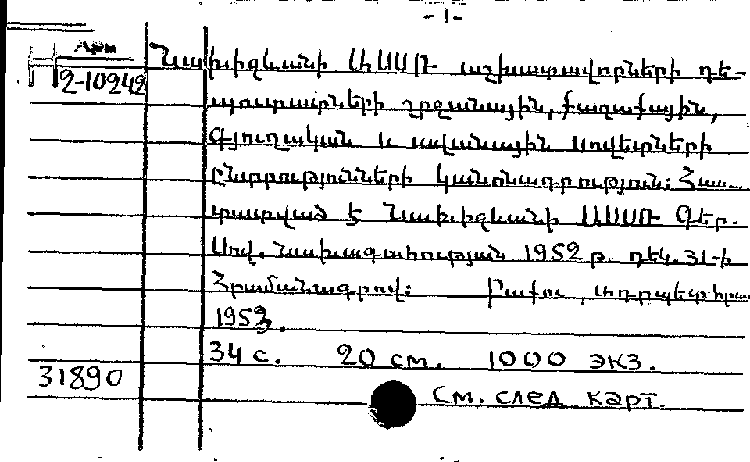 -1-
Арм
2-10242
Նախիջևանի ԱՍՍՌ աշխատավորների դե-
պուտատների շրջանային, քաղաքային,
գյուղական և ավանային սովետների
ընտրությունների կանոնադրություն: Հաս-
տատված է Նախիջևանի ԱՍՍՌ Գեր.
Սով. նախագահության 1952 թ. դեկ. 31-ի
Հրամանագրով: Բաքու,
1953.
34 с. 20 см. 1000 экз.
31890
См. след карт.